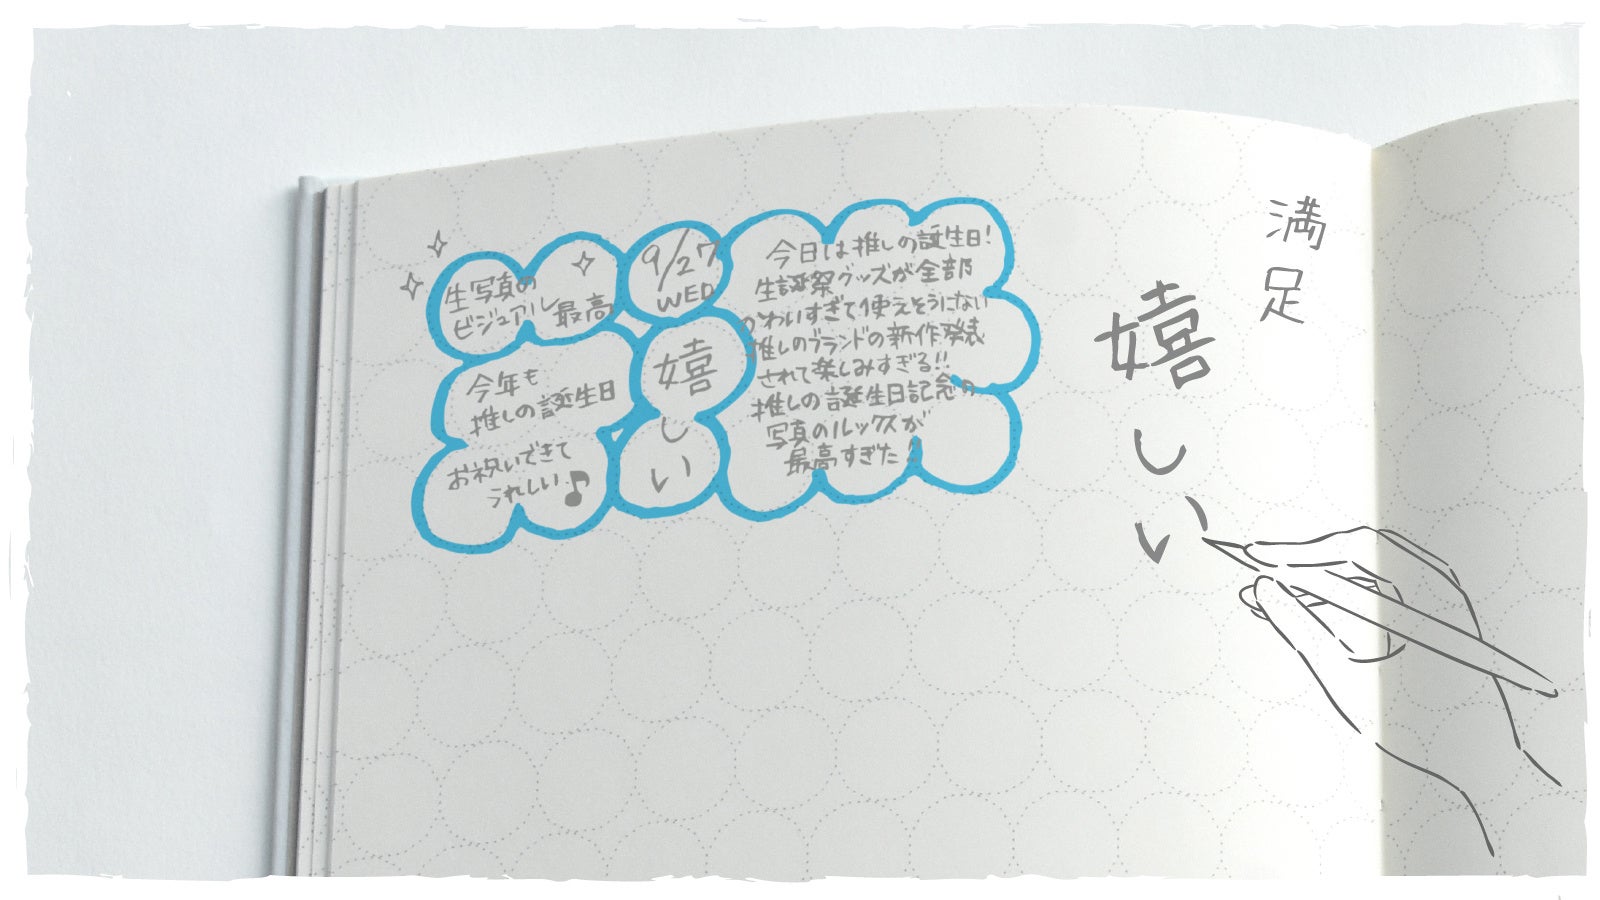 生写真の
ビジュアル最高
9/27
WED
今年も
推しの誕生日
お祝いできて
うれしい♪
嬉
し
い
今日は推しの誕生日!
生誕祭グッズが全部
かわいすぎて使えそうにない
推しのブランドの新作発表
されて楽しみすぎる!!
推しの誕生日記念の
写真のルックスが
最高すぎた!
満
足
嬉
し
い